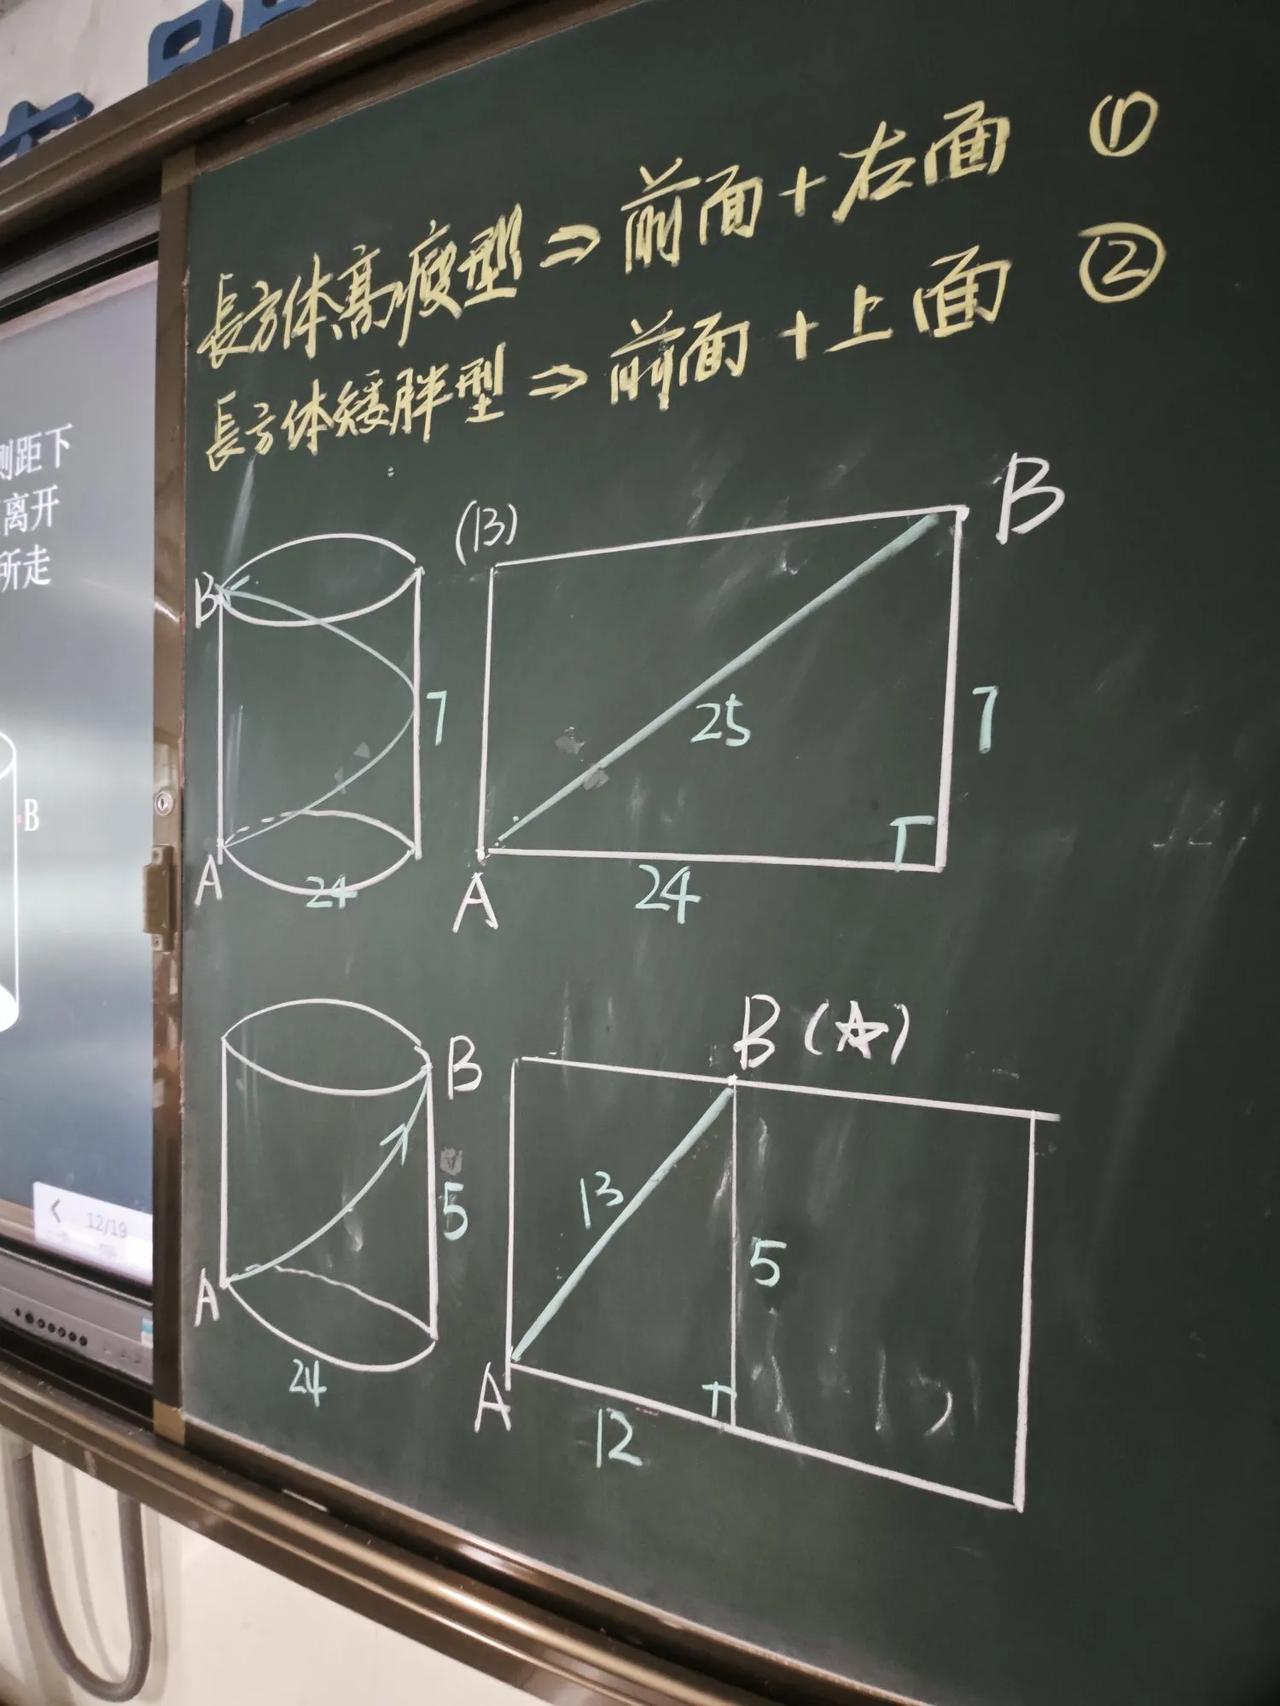 長方体高瘦型⇒前面+右面 ①
長方体矮胖型⇒前面+上面 ②
则距下
离开
所走
B
12/19
B
A
24
7
(B)
B
25
7
A
24
B
A
24
5
B(☆)
13
5
A
12